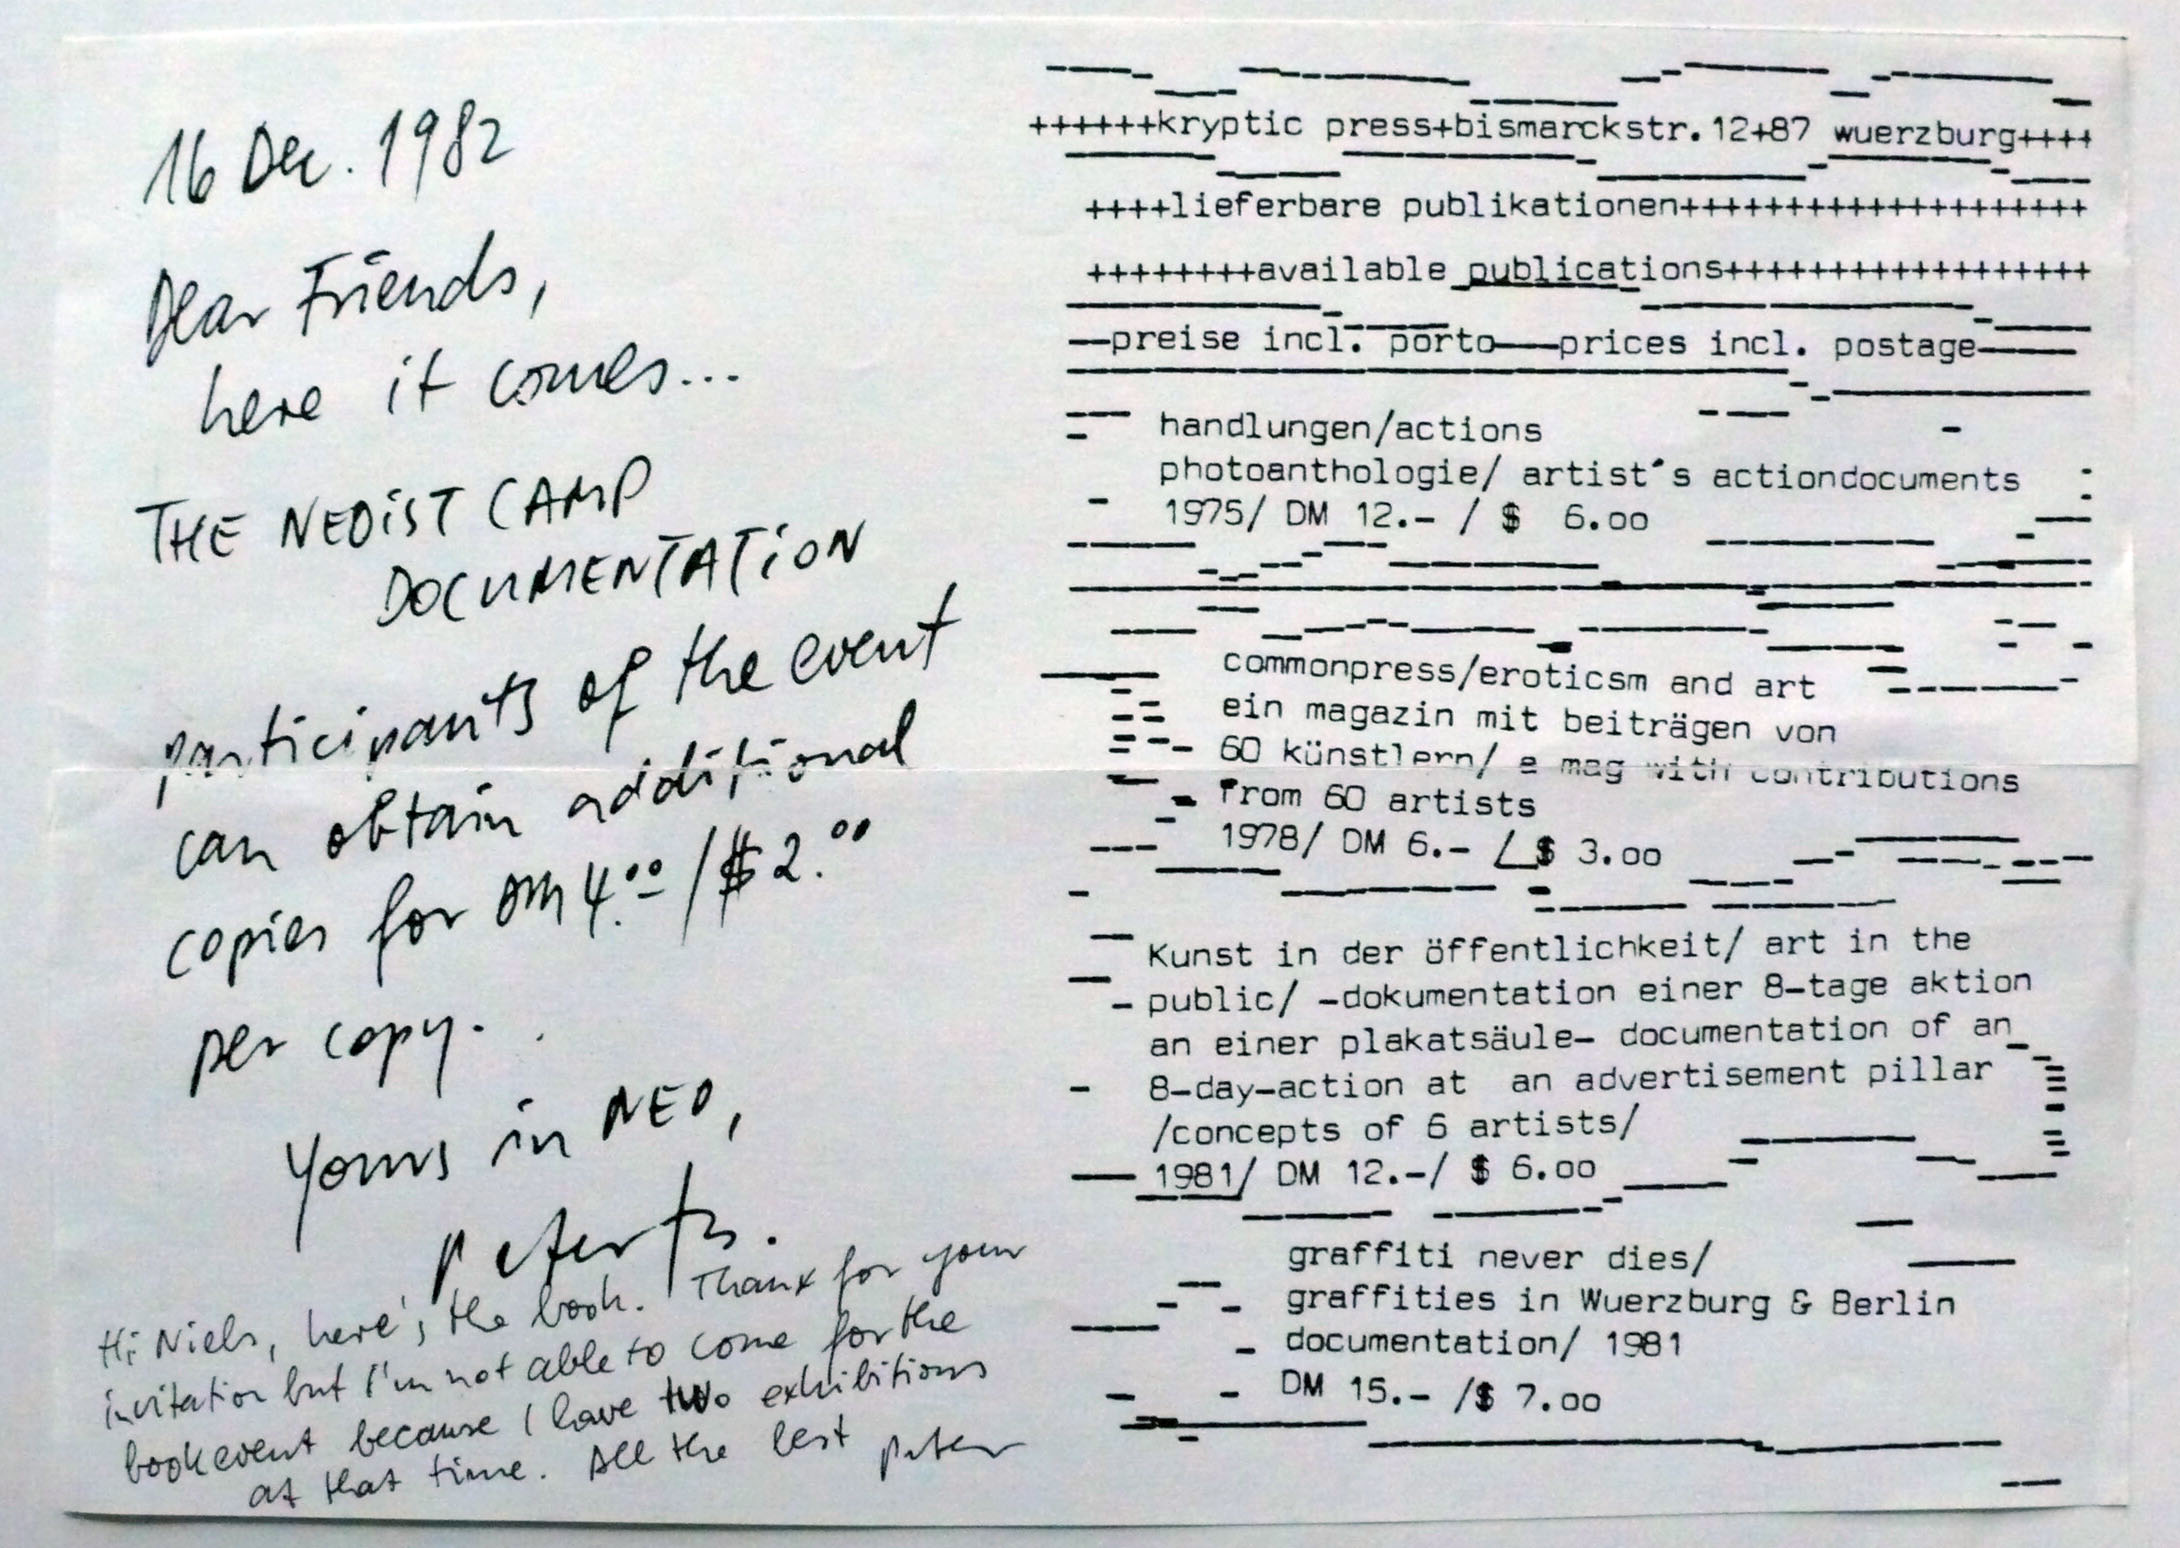 16 Dec. 1982
Dear Friends,
here it comes...
THE NEOiST CAMP
DOCUMENTATiON
participants of the event
can obtain additional
copies for DM 4.00 / $ 2.00
per copy.
Yours in NEO,
Peter
Hi Niels, here's the book. Thanx for your
invitation but I'm not able to come for the
bookevent because I have two exhibitions
at that time. All the best Peter
++++++kryptic press+bismarckstr.12+87 wuerzburg++++
++++lieferbare publikationen++++++++++++++++++++
++++++++available publications++++++++++++++++++
—preise incl. porto——prices incl. postage——
handlungen/actions
photoanthologie/ artist's actiondocuments
1975/ DM 12.- / $ 6.00
commonpress/eroticsm and art
ein magazin mit beiträgen von
60 künstlern/ a mag with contributions
from 60 artists
1978/ DM 6.- / $ 3.00
Kunst in der öffentlichkeit/ art in the
public/ -dokumentation einer 8-tage aktion
an einer plakatsäule- documentation of an
8-day-action at an advertisement pillar
/concepts of 6 artists/
1981/ DM 12.-/ $ 6.00
graffiti never dies/
graffities in Wuerzburg & Berlin
documentation/ 1981
DM 15.- /$ 7.00